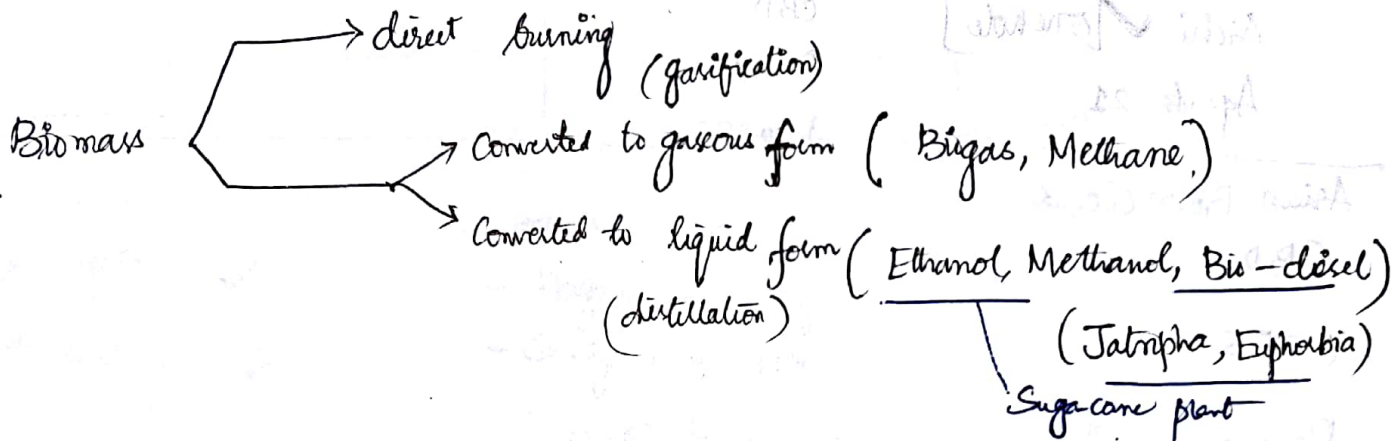 direct burning
(gasification)
Biomass
Converted to gaseous form ( Biogas, Methane )
Converted to liquid form ( Ethanol, Methanol, Bio-diesel )
(distillation)
(Jatropha, Euphorbia)
Sugacane plant